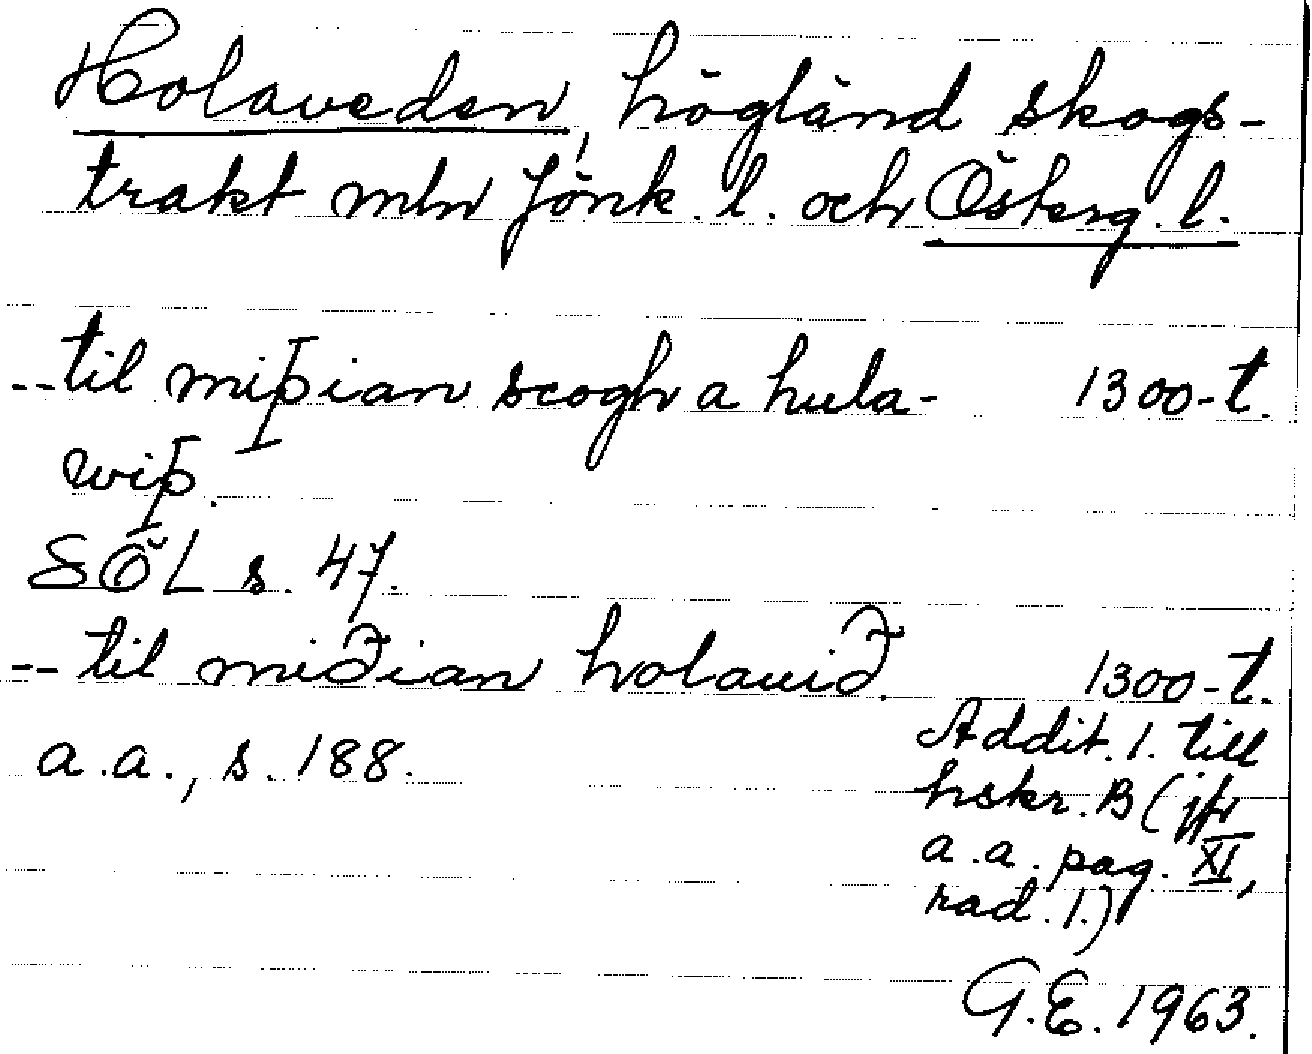 Holaveden, högländ skogs-
trakt mln Jönk. l. och Österg. l.
--til miþian scogh a hula- 1300-t.
wiþ.
SÖL s. 47.
-- til miðian holauið. 1300-t.
a.a., s. 188. Addit. 1. till
hskr. B (jfr
a.a. pag. XI,
rad. 1.)
G.E. 1963.